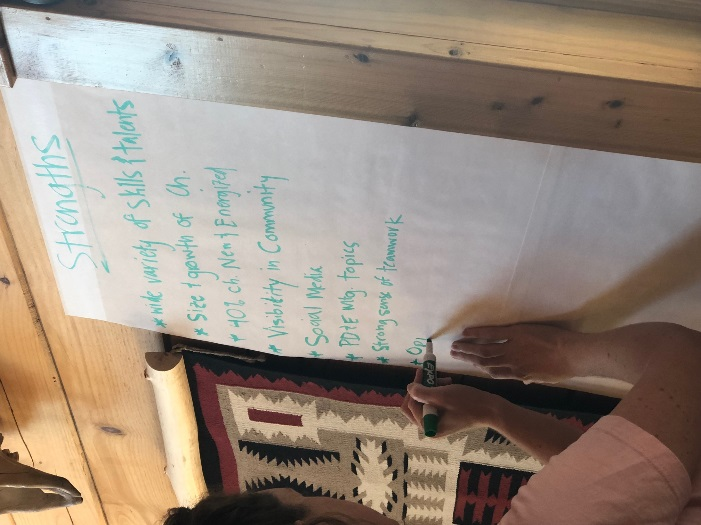 Strengths
* wide variety of skills & talents
* Size & growth of Ch.
* 40% Ch New & Energized
* Visibility in Community
* Social Media
* PD+E Mtg. topics
* Strong sense of teamwork
* Op
EXPO